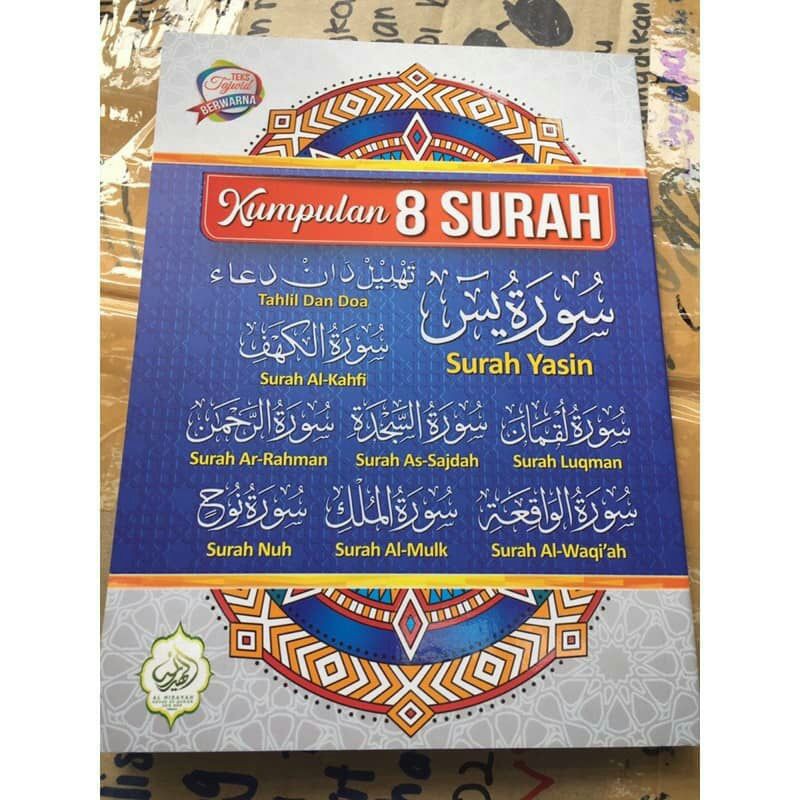 TEKS
Tajwid
BERWARNA
Kumpulan 8 SURAH
تهليل دان دعاء
Tahlil Dan Doa
سُورَةُ يسٓ
Surah Yasin
سُورَةُ الكَهْفِ
Surah Al-Kahfi
سُورَةُ الرَّحْمٰن
Surah Ar-Rahman
سُورَةُ السَّجْدَة
Surah As-Sajdah
سُورَةُ لُقْمَان
Surah Luqman
سُورَةُ نُوح
Surah Nuh
سُورَةُ المُلْكِ
Surah Al-Mulk
سُورَةُ الوَاقِعَة
Surah Al-Waqi'ah
AL HIDAYAH
HOUSE OF QURAN